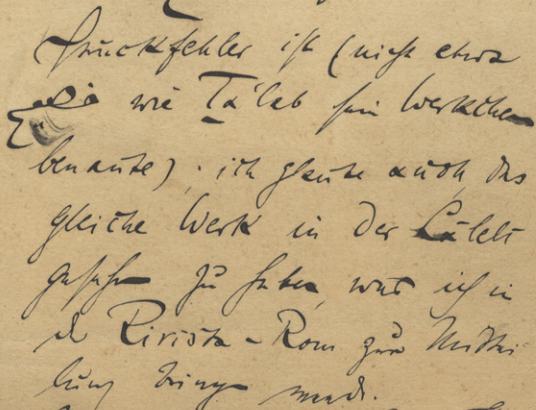 Druckfehler ist (nicht etwa
wie Ta'lab sein Werkchen
benannte); ich glaube auch, das
gleiche Werk in der
gesehen zu haben, was ich in
der Rivista - Rom zur Mittei
lung bringen werde.